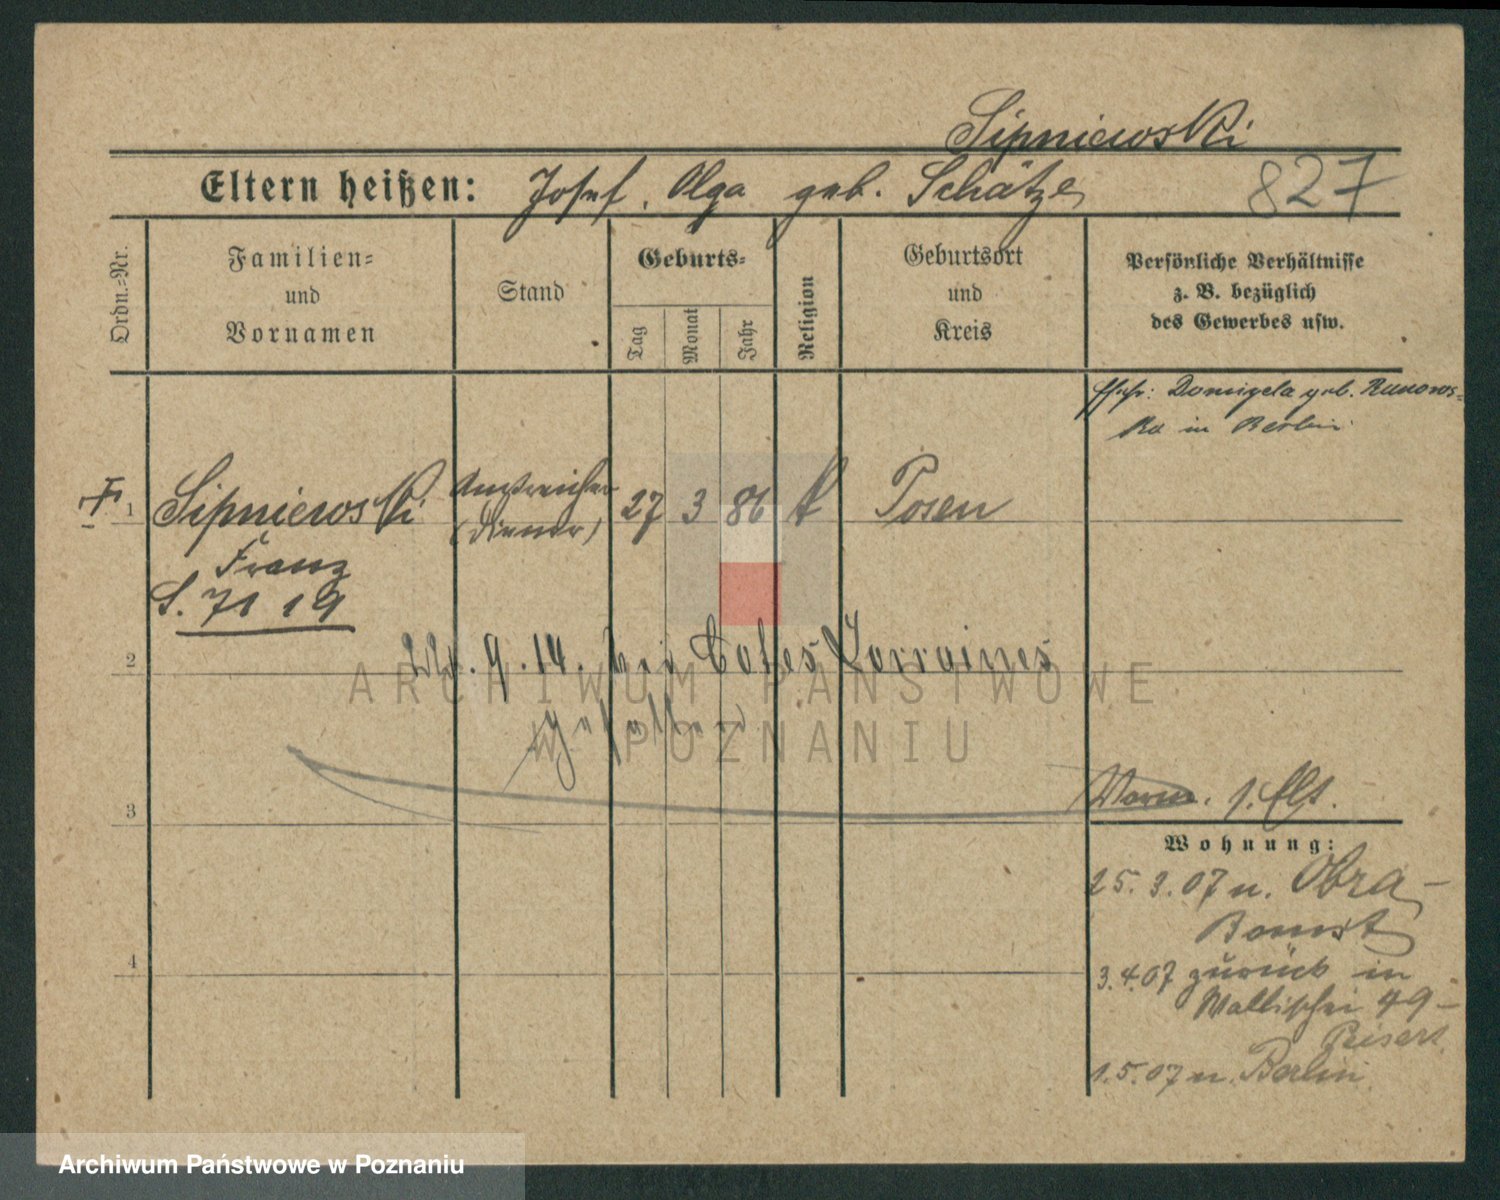 Sipniewski
Eltern heißen: Josef, Olga geb. Schätze
827
Ordn.-Nr.
Familien-
und
Vornamen
Stand
Geburts-
Tag
Monat
Jahr
Religion
Geburtsort
und
Kreis
Persönliche Verhältnisse
z. B. bezüglich
des Gewerbes usw.
Ehefr: Domicela geb. Runows-
ka in Berlin
1
Sipniewski
Anstreicher
27 3 86 k Posen
(Diener)
Franz
S. 71 19
2
9.14. bei Cotes Lorraines
gefallen
3
4
Wohnung:
25.3.07 n. Obra-
Bomst
3.4.07 zurück in
Wallischei 49-
Peisert
1.5.07 n. Berlin
ARCHIWUM PAŃSTWOWE
W POZNANIU
Archiwum Państwowe w Poznaniu